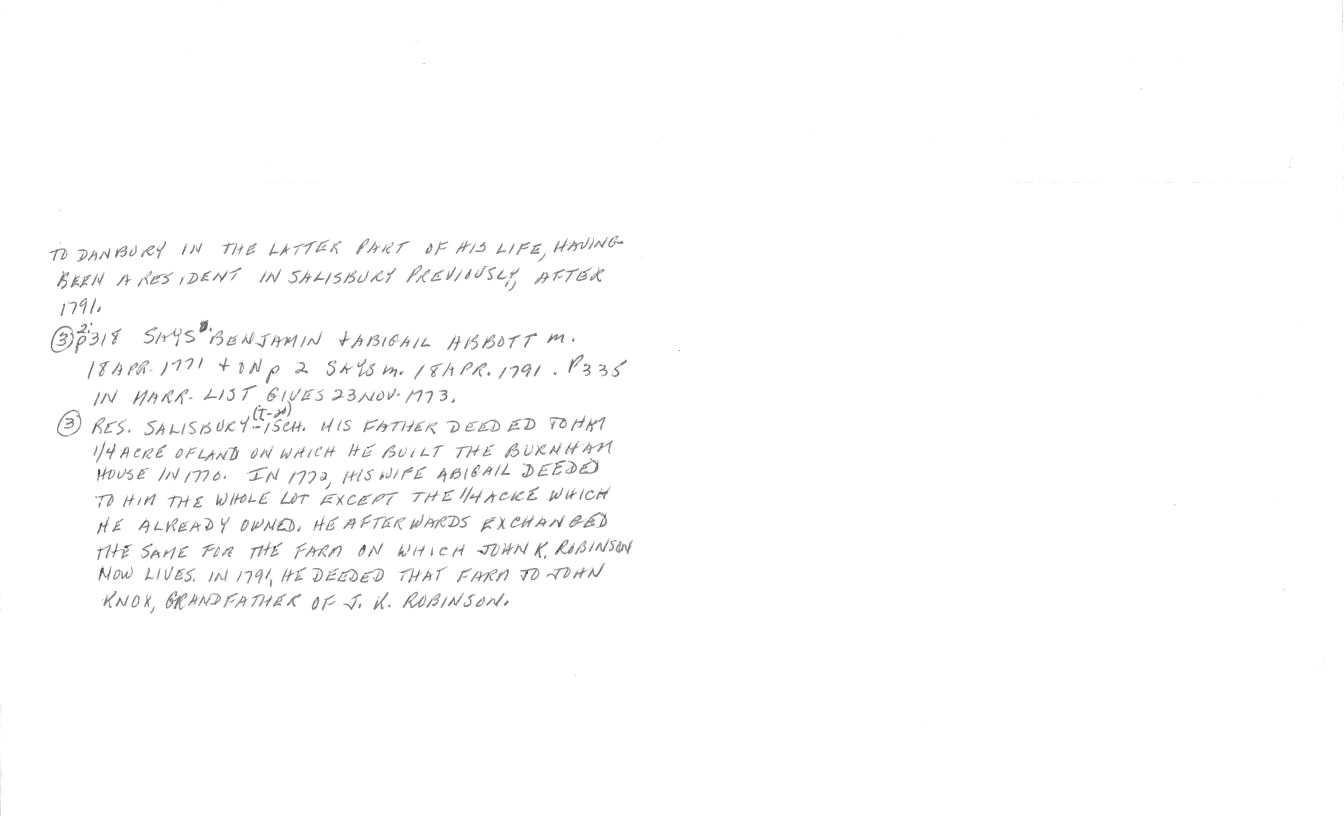 TO DANBURY IN THE LATTER PART OF HIS LIFE, HAVING
BEEN A RESIDENT IN SALISBURY PREVIOUSLY, AFTER
1791.
(3) 2: p318 SAYS BENJAMIN + ABIGAIL ABBOTT m.
18 APR. 1771 + ON p 2 SAYS m. 18 APR. 1791. P335
IN MARR. LIST GIVES 23 NOV. 1773.
(3) RES. SALISBURY - 1 SCH. HIS FATHER DEEDED TO HIM
1/4 ACRE OF LAND ON WHICH HE BUILT THE BURNHAM
HOUSE IN 1770. IN 1772, HIS WIFE ABIGAIL DEEDED
TO HIM THE WHOLE LOT EXCEPT THE 1/4 ACRE WHICH
HE ALREADY OWNED. HE AFTERWARDS EXCHANGED
THE SAME FOR THE FARM ON WHICH JOHN K. ROBINSON
NOW LIVES. IN 1791, HE DEEDED THAT FARM TO JOHN
KNOX, GRANDFATHER OF J. K. ROBINSON.